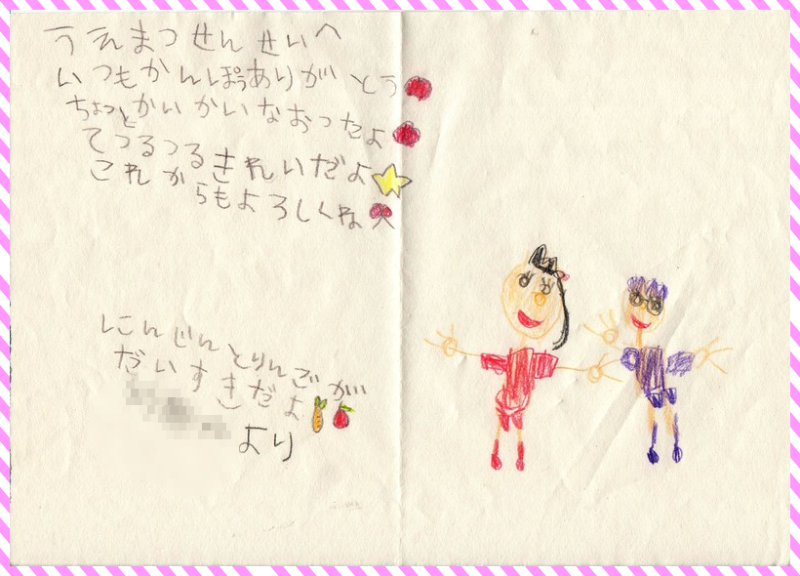 うえまつせんせいへ
いつもかんぽうありがとう
ちょっとかいかいなおったよ
てつるつるきれいだよ
これからもよろしくね
にんじんとりんごが
だいすきだよ
より